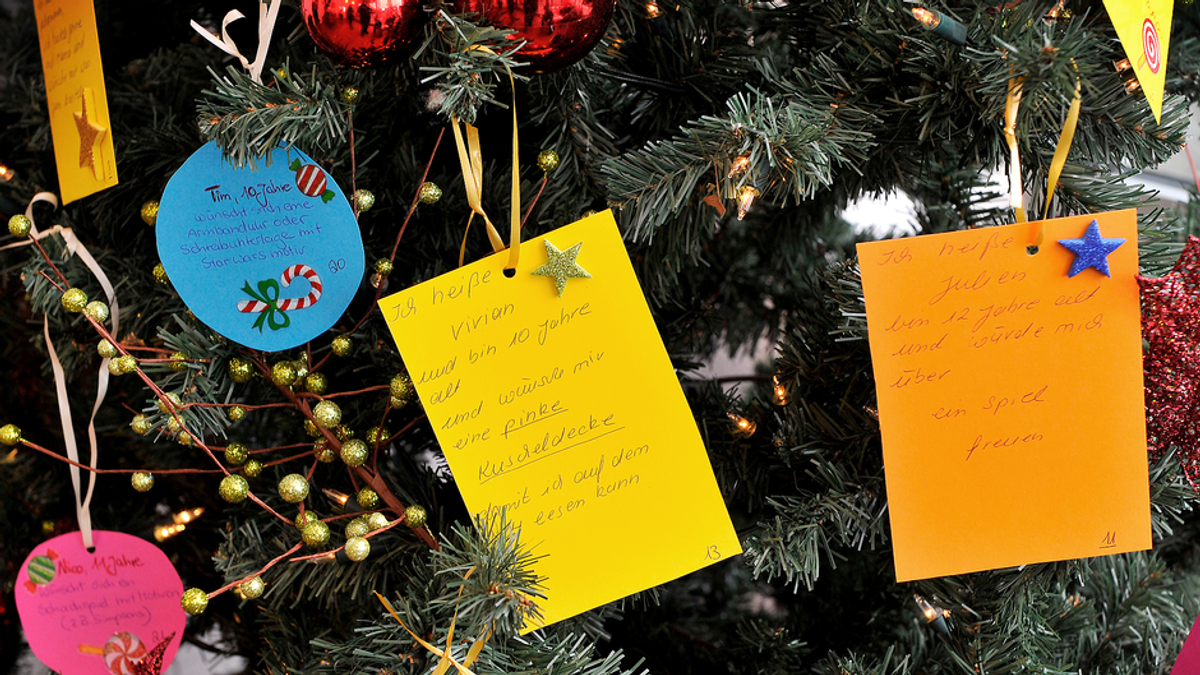 Tim, 10 Jahre
wünscht sich eine
Armbanduhr oder
Schreibunterlage mit
Star wars motiv
20
Ich heiße
Vivian
und bin 10 Jahre
alt
und wünsche mir
eine pinke
Kuscheldecke
damit ich auf dem
lesen kann
13
Ich heiße
Julien
bin 12 Jahre alt
und würde mich
über
ein spiel
freuen
11
Nico, 11 Jahre
wünscht sich ein
Schachspiel mit Motiven
(z.B. Simpsons)
21